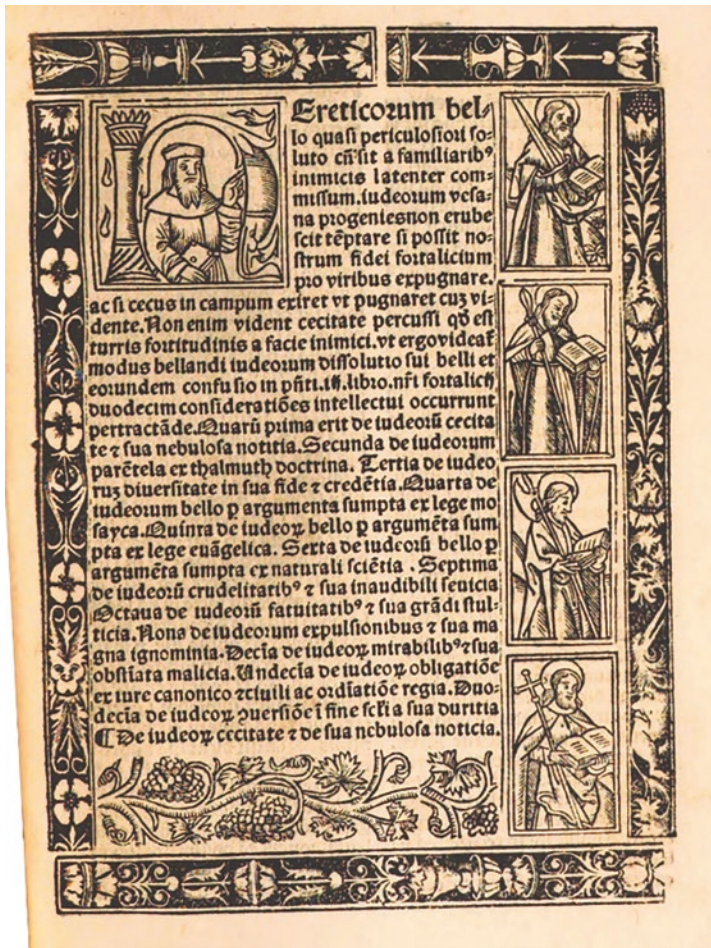 Ereticorum bel⸗
lo quasi periculosiori so⸗
luto cū sit a familiarib⁹
inimicis latenter com⸗
missum. iudeorum vesa⸗
na progenies non erube
scit tēptare si possit no⸗
strum fidei fortalicium
pro viribus expugnare.
ac si cecus in campum exiret vt pugnaret cuȝ vi⸗
dente. Non enim vident cecitate percussi qđ est
turris fortitudinis a facie inimici. vt ergo videaꝉ
modus bellandi iudeorum dissolutio sui belli et
eorundem confusio in pn̄ti. iij. libro. nr̄i fortalicij
duodecim consideratiōes intellectui occurrunt
pertractāde. Quarū prima erit de iudeorū cecita
te ⁊ sua nebulosa notitia. Secunda de iudeorum
parētela ex thalmuth doctrina. Tertia de iudeo
ruȝ diuersitate in sua fide ⁊ credētia. Quarta de
iudeorum bello ꝑ argumenta sumpta ex lege mo
sayca. Quinta de iudeoꝝ bello ꝑ argumēta sum
pta ex lege euāgelica. Sexta de iudeorū bello ꝑ
argumēta sumpta ex naturali sciētia. Septima
de iudeorū crudelitatib⁹ ⁊ sua inaudibili seuicia
Octaua de iudeorū fatuitatib⁹ ⁊ sua grādi stul⸗
ticia. Nona de iudeorum expulsionibus ⁊ sua ma
gna ignominia. Decīa de iudeoꝝ mirabilib⁹ ⁊ sua
obstīata malicia. Undecīa de iudeoꝝ obligatiōe
ex iure canonico ⁊ ciuili ac ordīatiōe regia. Duo⸗
decīa de iudeoꝝ ꝯuersiōe ī fine sc̄li a sua duritia
¶ De iudeoꝝ cecitate ⁊ de sua nebulosa noticia.